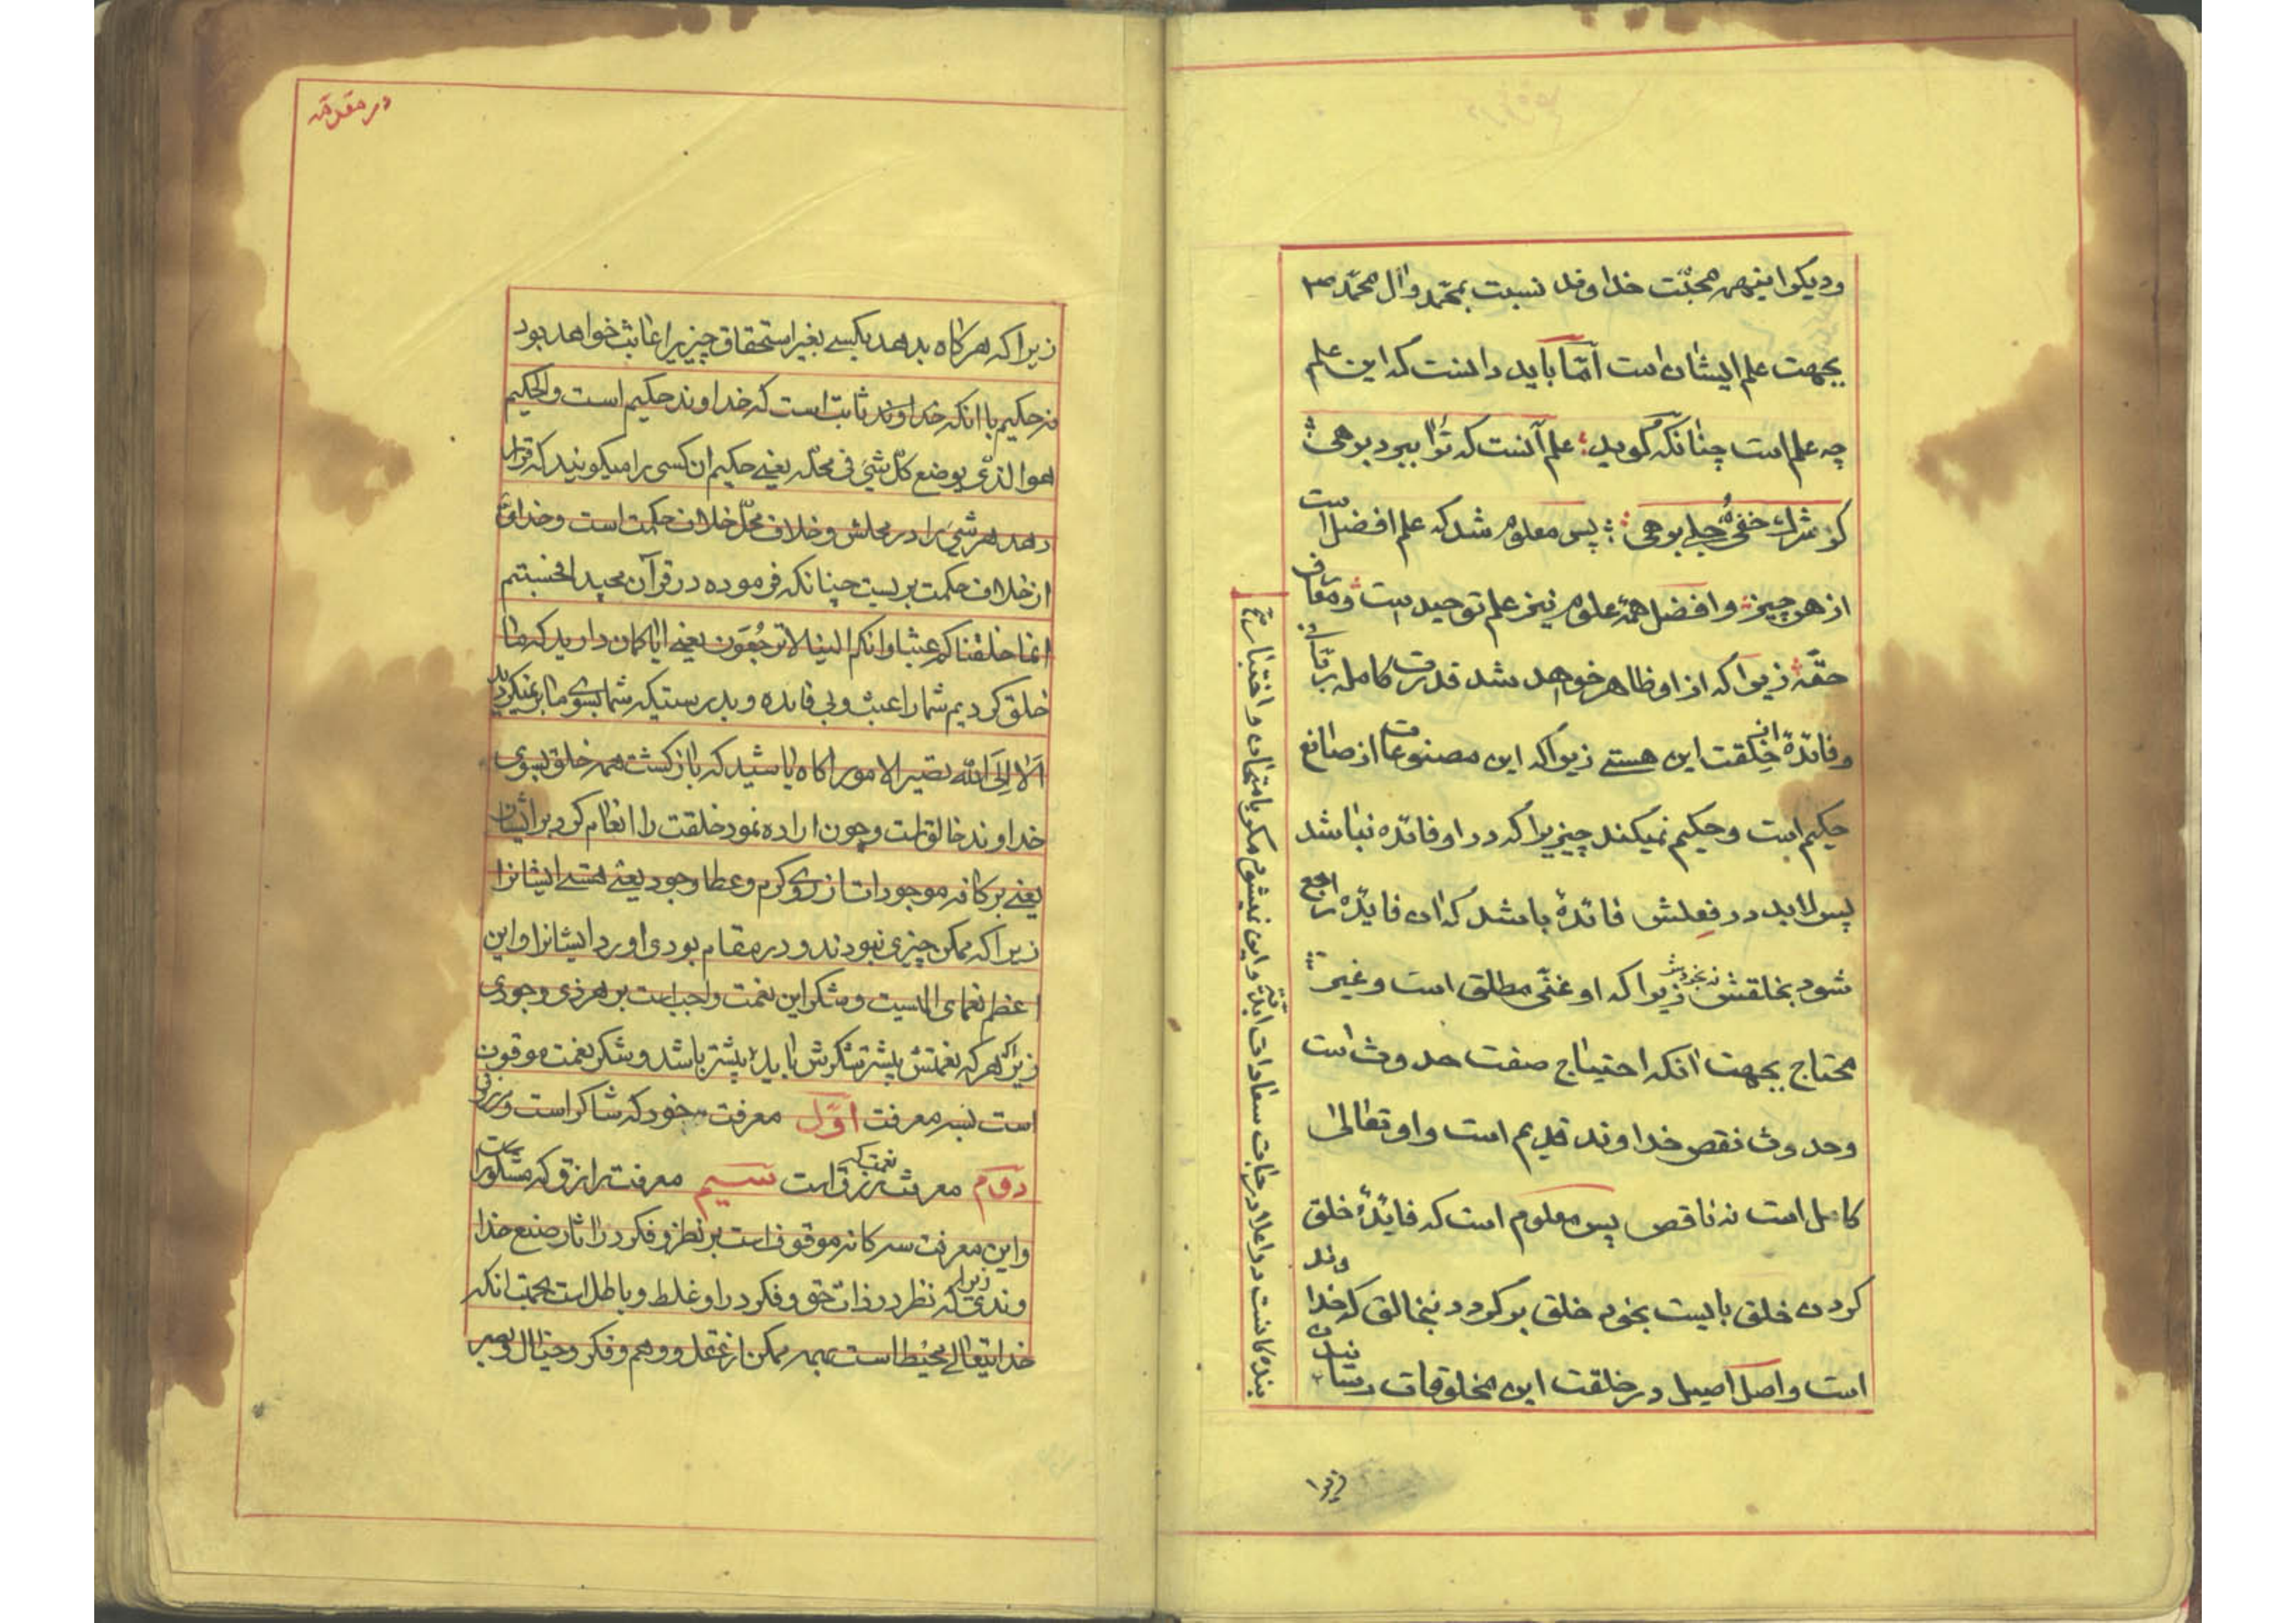 ودیکر اینهمه محبّت خداوند نسبت بمحمّد وآل محمّد ص
بجهت علم ایشان است امّا باید دانست که این علم
چه علم است چنانکه کوید علم آنست که تُرا ببرد بوهی
کز شرك خفی و جلے بوهی پس معلوم شد که علم افضل است
از هر چیز وافضل همهٔ علوم نیز علم توحید است ومعارف
حقّه زیرا که از او ظاهر خواهد شد قدرت کامله ربّانی
وفائدهٔ خلقت این هستے زیرا که این مصنوعات از صانع
حکیم است وحکیم نمیکند چیزیرا که در او فائده نباشد
پس لابد در فعلش فائدهٔ باشد که ان فایده راجع
شود بخلقش نه بخودش زیرا که او غنّی مطلق است وغیر
محتاج بجهت انکه احتیاج صفت حدوث است
وحدوث نقص خداوند قدیم است واو تعالی
کامل است نه ناقص پس معلوم است که فایدهٔ خلق
کردن خلق بایست بخود خلق برکردد نبخالق که خداوند
است واصل اصیل در خلقت این مخلوقات رسانیدن
بنده کانست در اعلا درجات سعادات ابدیّه واین نمیشود مکر بامتحان واختبار
زیرا
در مقدّمه
زیرا که هر کاه بدهد بکسے بغیر استحقاق چیزیرا عابث خواهد بود
نه حکیم با انکه خداوند ثابت است که خداوند حکیم است والحکیم
هو الذّی یوضع کلّ شیَ فی محلّه یعنے حکیم ان کسی را میکویند که قرار
دهد هر شیَ را در محلش وخلاف محلّ خلاف حکمت است وخداوند
از خلاف حکمت بریست چنانکه فرموده در قرآن مجید افحسبتم
انما خلقناکم عبثا وانکم الینا لا ترجعون یعنے ایا کمان دارید که ما
خلق کردیم شما را عبث وبی فایده وبدرستیکه شما بسوی ما برنمیکردید
الا اِلَی الله تصیر الامور اکاه باشید که باز کشت همه خلق بسوی
خداوند خالق است وچون اراده نمود خلقت را انعام کرد بر ایشان
یعنے بر کافه موجودات از روی کرم وعطا وجود یعنے هستے ایشانرا
زیرا که ممکن چیزی نبودند ودر مقام بودی اورد ایشانرا واین
اعظم نعمای الهیست وشکر این نعمت واجب است بر هر ذی وجودی
زیرا که هر که نعمتش بیشتر شکرش باید بیشتر باشد وشکر نعمت موقوف
است بسه معرفت اوّل معرفت بخود که شاکر است
دوّم معرفت نعمت که رزق است سیم معرفت رازق که مشکور است
واین معرفت سه کانه موقوف است بر نظر وفکر در اثار صنع خدا
وندی زیرا که نظر در ذات حق وفکر در او غلط وباطل است بجهت انکه
خدایتعالے محیط است بهمه ممکن از عقل ووهم وفکر وخیال وبصر